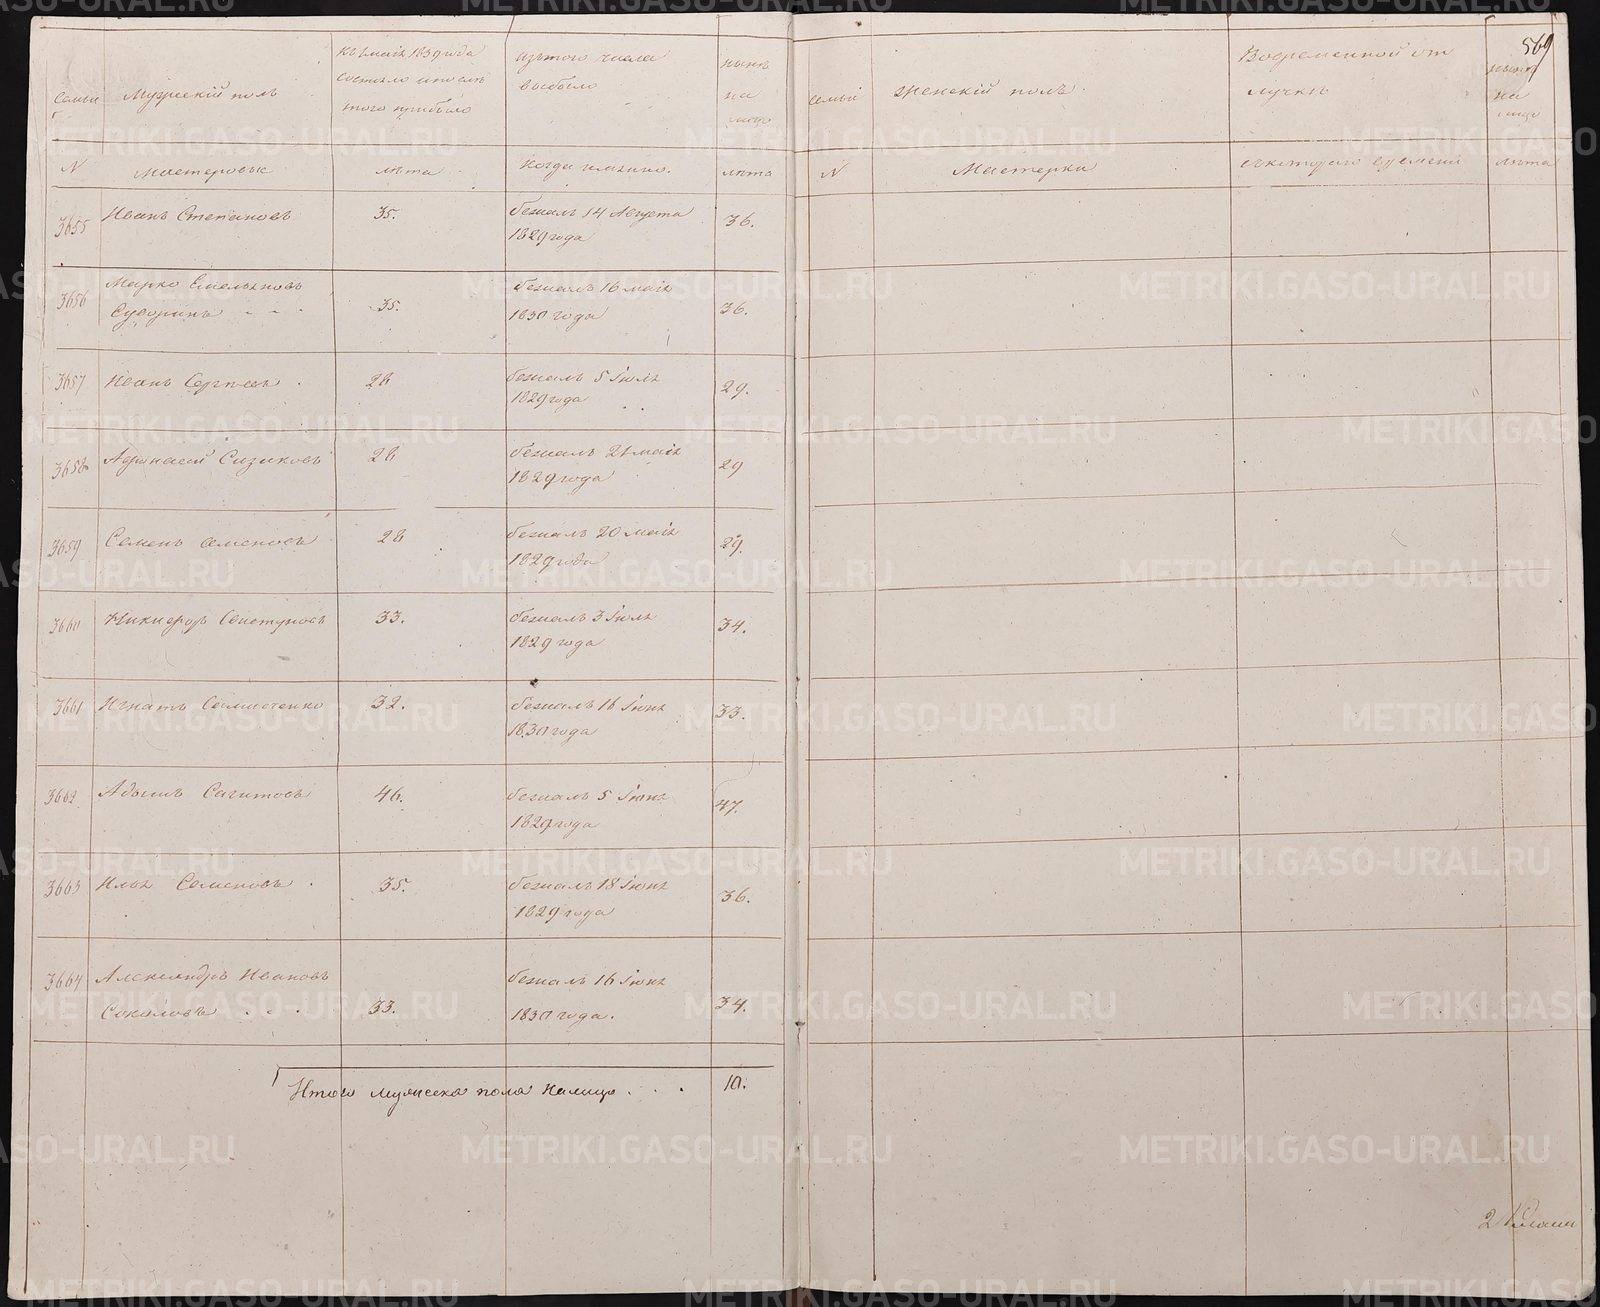 569
Семьи
Мужеский полъ
Къ 1 маія 1859 года
состояло и после
того прибыло
изътого числа
выбыло
нынѣ
на
лицо
Семьи
Женский полъ.
Вовременной от
лучкѣ
нынѣ
на
лицо
N
Мастеровые
лѣта
Когда имянно.
лѣта
N
Мастерки
съкотораго времени
лѣта
3655
Иванъ Степановъ
35.
бежалъ 14 Августа
1829 года
36.
3656
Марко Емельяновъ
Суворинъ - - -
35.
бежалъ 16 маія
1830 года
36.
3657
Иванъ Сергѣевъ .
28
бежалъ 5 Іюля
1829 года
29.
3658
Афонасей Сизиковъ
28
бежалъ 21 маія
1829 года
29
3659
Семенъ Семеновъ
28
бежалъ 20 маія
1829 года
29.
3660
Никифоръ Свистуновъ
33.
бежалъ 3 Іюля
1829 года
34.
3661
Игнатъ
32.
бежалъ 16 Іюня
1830 года
33.
3662
Абдулъ Сагитовъ
46.
бежалъ 5 Іюня
1829 года
47.
3663
Илья Семеновъ .
35.
бежалъ 18 Іюня
1829 года
36.
3664
Александръ Ивановъ
Соколовъ . . .
33.
бежалъ 16 Іюня
1830 года.
34.
Итого мужеска пола налицо . . .
10.
2
METRIKI.GASO-URAL.RU